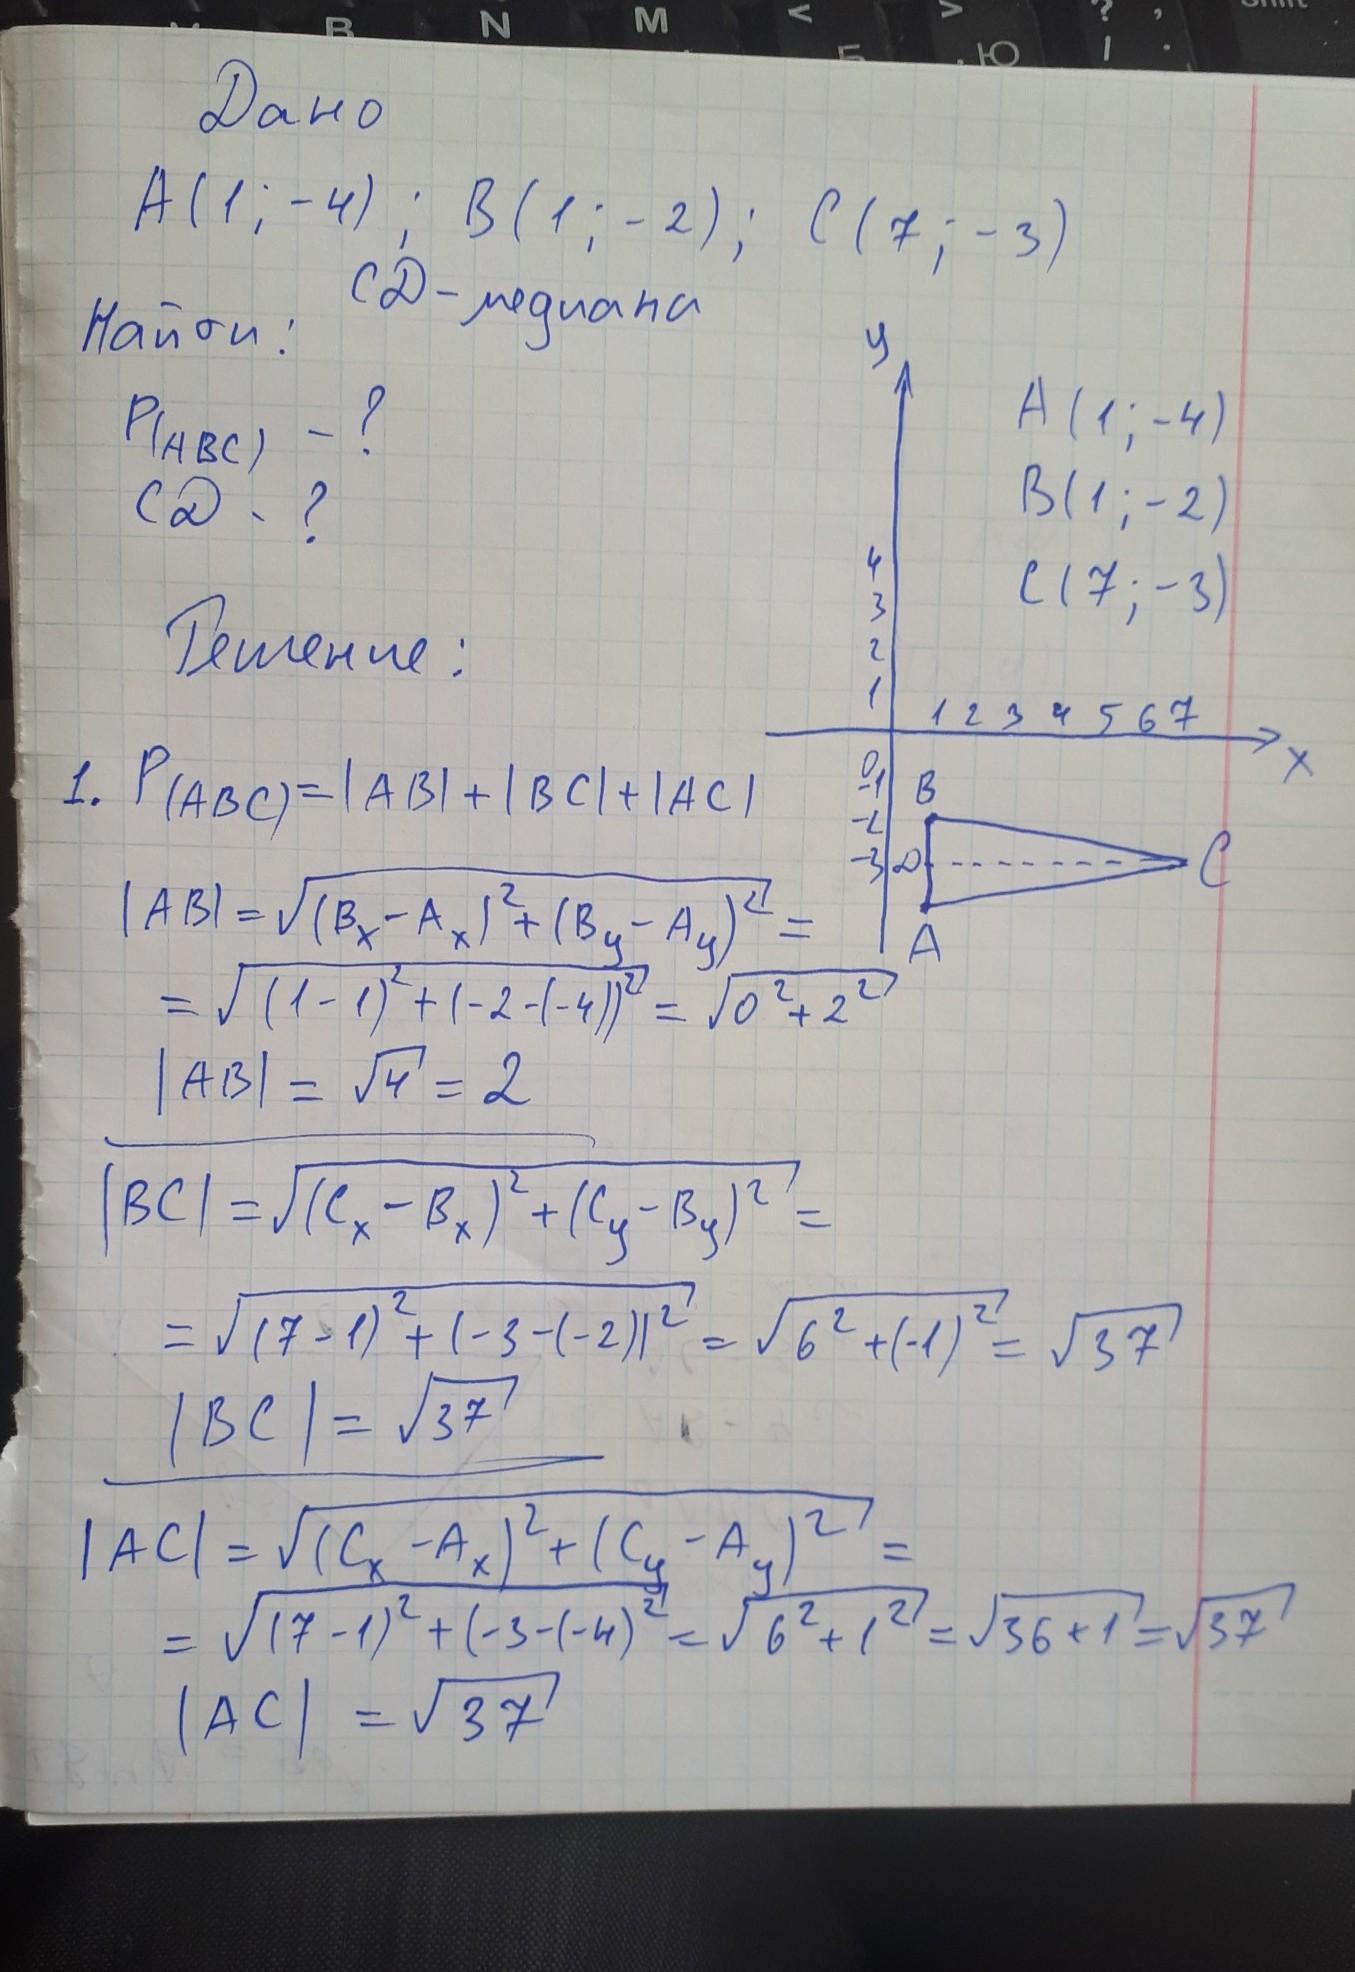 B N M < > ? , Shift
Б . Ю / .
Дано
A(1;-4); B(1;-2); C(7;-3)
CD-медиана
Найти:
P(ABC) - ?
CD - ?
Решение:
y
A(1;-4)
B(1;-2)
C(7;-3)
4
3
2
1
1 2 3 4 5 6 7
x
0
-1 B
-2
-3 D C
A
1. P(ABC)=|AB|+|BC|+|AC|
|AB|=√((Bx-Ax)²+(By-Ay)²)=
=√((1-1)²+(-2-(-4))²)=√(0²+2²)
|AB|=√4=2
|BC|=√((Cx-Bx)²+(Cy-By)²)=
=√((7-1)²+(-3-(-2))²)=√(6²+(-1)²)=√37
|BC|=√37
|AC|=√((Cx-Ax)²+(Cy-Ay)²)=
=√((7-1)²+(-3-(-4)²)=√(6²+1²)=√(36+1)=√37
|AC|=√37